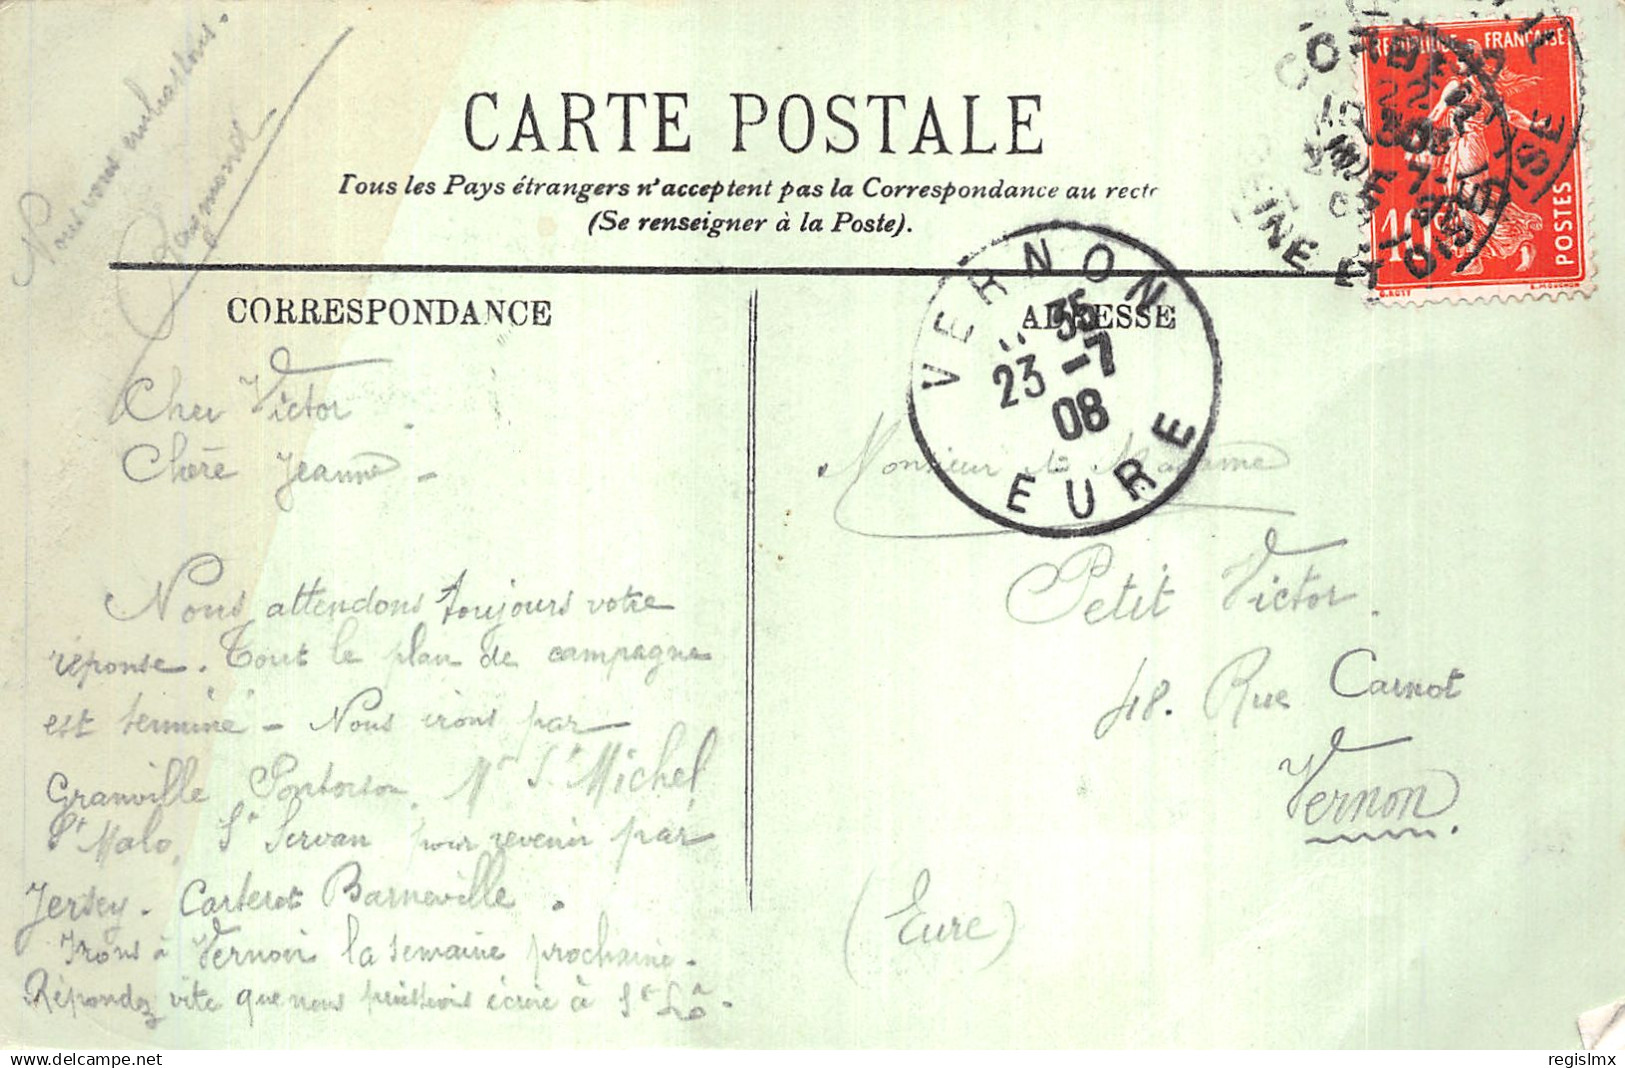 Nous vous embrassons.
Raymond
CARTE POSTALE
Tous les Pays étrangers n'acceptent pas la Correspondance au recto
(Se renseigner à la Poste).
REPUBLIQUE FRANÇAISE
10c
POSTES
SEINE ET OISE
VERNON
35
23 -7
08
EURE
CORRESPONDANCE
ADRESSE
Cher Victor.
Chère Jeanne -
Nous attendons toujours votre
réponse. Tout le plan de campagne
est terminé - Nous irons par
Granville Pontorson, Mt St Michel,
St Malo, St Servan pour revenir par
Jersey. Carteret Barneville.
Irons à Vernon la semaine prochaine.
Répondez vite que nous puissions écrire à St Lô.
Monsieur et Madame
Petit Victor.
48. Rue Carnot
Vernon.
(Eure)
delcampe.net
regislmx